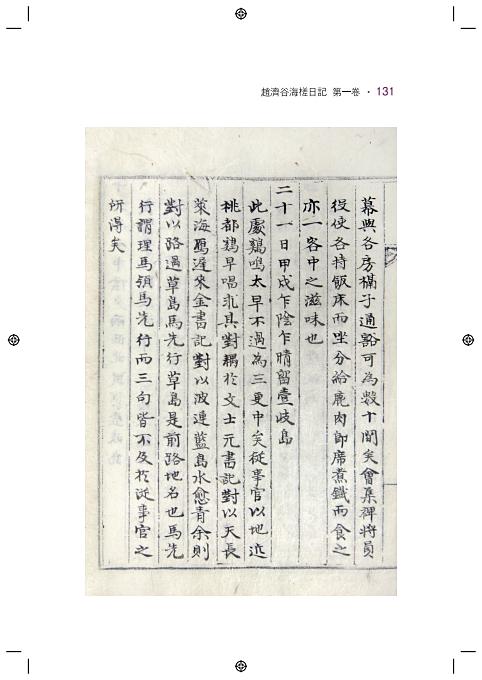 趙濟谷海槎日記 第一卷 · 131
幕與各房槅子通豁可為數十間矣會集裨將員
役使各持飯床而坐分給鹿肉卽席煮鐵而食之
亦一客中之滋味也
二十一日甲戌乍陰乍晴留壹岐島
此處鷄鳴太早不過為三更中矣從事官以地近
桃都鷄早唱求其對耦於文士元書記對以天長
萊海鴈遲來金書記對以波連藍島水愈靑余則
對以路過草島馬先行草島是前路地名也馬先
行謂理馬領馬先行而三句皆不及於從事官之
所得矣